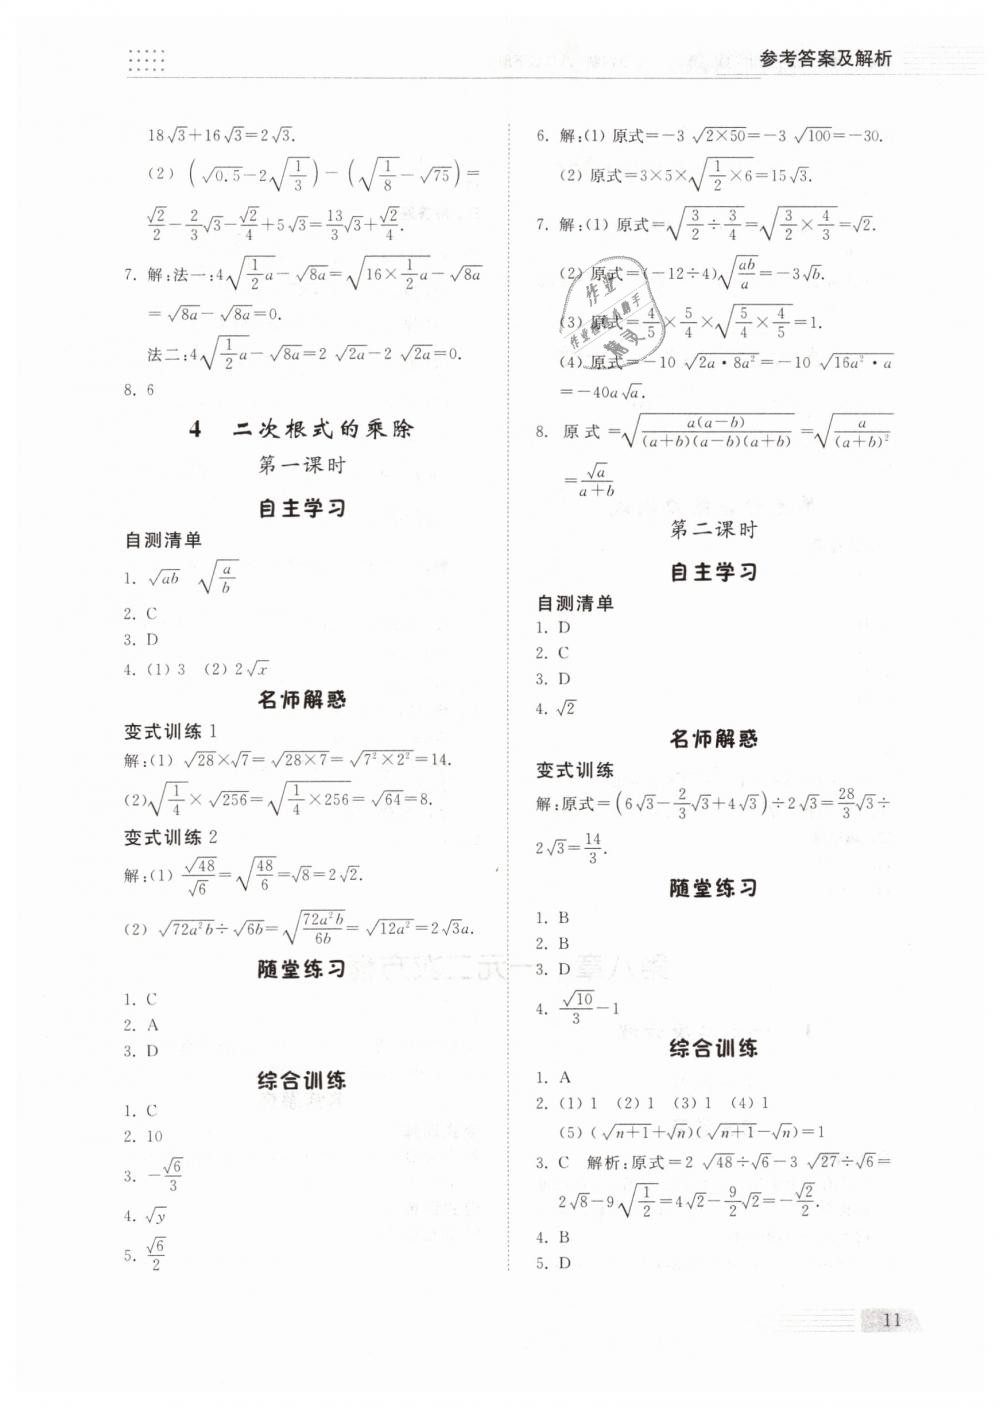 参考答案及解析
18√3+16√3=2√3.
(2) (√0.5-2√(1/3))-(√(1/8)-√75)=
√2/2-2/3√3-√2/4+5√3=13/3√3+√2/4.
7. 解:法一:4√(1/2a)-√8a=√(16×1/2a)-√8a
=√8a-√8a=0.
法二:4√(1/2a)-√8a=2√2a-2√2a=0.
8. 6
4 二次根式的乘除
第一课时
自主学习
自测清单
1. √ab √(a/b)
2. C
3. D
4. (1) 3 (2) 2√x
名师解惑
变式训练 1
解:(1) √28×√7=√(28×7)=√(7²×2²)=14.
(2)√(1/4)×√256=√(1/4×256)=√64=8.
变式训练 2
解:(1) √48/√6=√(48/6)=√8=2√2.
(2) √72a²b÷√6b=√(72a²b/6b)=√12a²=2√3a.
随堂练习
1. C
2. A
3. D
综合训练
1. C
2. 10
3. -√6/3
4. √y
5. √6/2
6. 解:(1) 原式=-3√(2×50)=-3√100=-30.
(2) 原式=3×5×√(1/2×6)=15√3.
7. 解:(1) 原式=√(3/2÷3/4)=√(3/2×4/3)=√2.
(2) 原式=(-12÷4)√(ab/a)=-3√b.
(3) 原式=4/5×5/4×√(5/4×4/5)=1.
(4) 原式=-10√(2a·8a²)=-10√(16a²·a)
=-40a√a.
8. 原式=√(a(a-b)/(a+b)(a-b)(a+b))=√(a/(a+b)²)
=√a/(a+b)
第二课时
自主学习
自测清单
1. D
2. C
3. D
4. √2
名师解惑
变式训练
解:原式=(6√3-2/3√3+4√3)÷2√3=28/3√3÷
2√3=14/3.
随堂练习
1. B
2. B
3. D
4. √10/3-1
综合训练
1. A
2. (1) 1 (2) 1 (3) 1 (4) 1
(5) (√(n+1)+√n)(√(n+1)-√n)=1
3. C 解析:原式=2√48÷√6-3√27÷√6=
2√8-9√(1/2)=4√2-9/2√2=-√2/2.
4. B
5. D
11